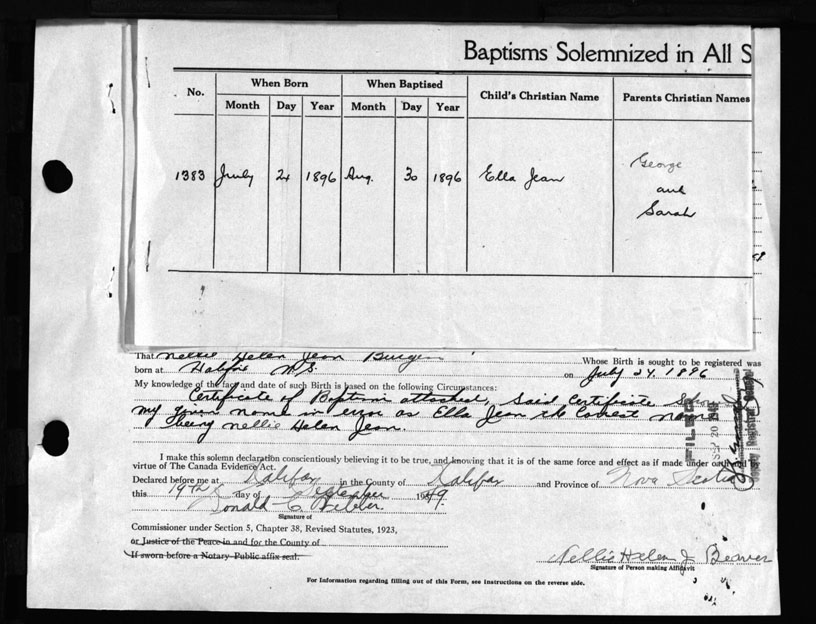 Baptisms Solemnized in All S
No. When Born When Baptised Child's Christian Name Parents Christian Names
Month Day Year Month Day Year
1383 July 24 1896 Aug. 30 1896 Ella Jean George
and
Sarah
That Nellie Helen Jean Whose Birth is sought to be registered was
born at Halifax N.S. on July 24. 1896
My knowledge of the fact and date of such Birth is based on the following Circumstances:
Certificate of Baptism attached, Said Certificate
my given name in error as Ella Jean the Correct name
being Nellie Helen Jean.
FILED
SEP 20
I make this solemn declaration conscientiously believing it to be true, and knowing that it is of the same force and effect as if made under oath and by
virtue of The Canada Evidence Act.
Declared before me at Halifax in the County of Halifax and Province of Nova Scotia
this 19th day of September 1949.
Ronald C.
Signature of
Commissioner under Section 5, Chapter 38, Revised Statutes, 1923,
or Justice of the Peace in and for the County of
If sworn before a Notary Public affix seal.
Nellie Helen J Beaver
Signature of Person making Affidavit
For Information regarding filling out of this Form, see instructions on the reverse side.